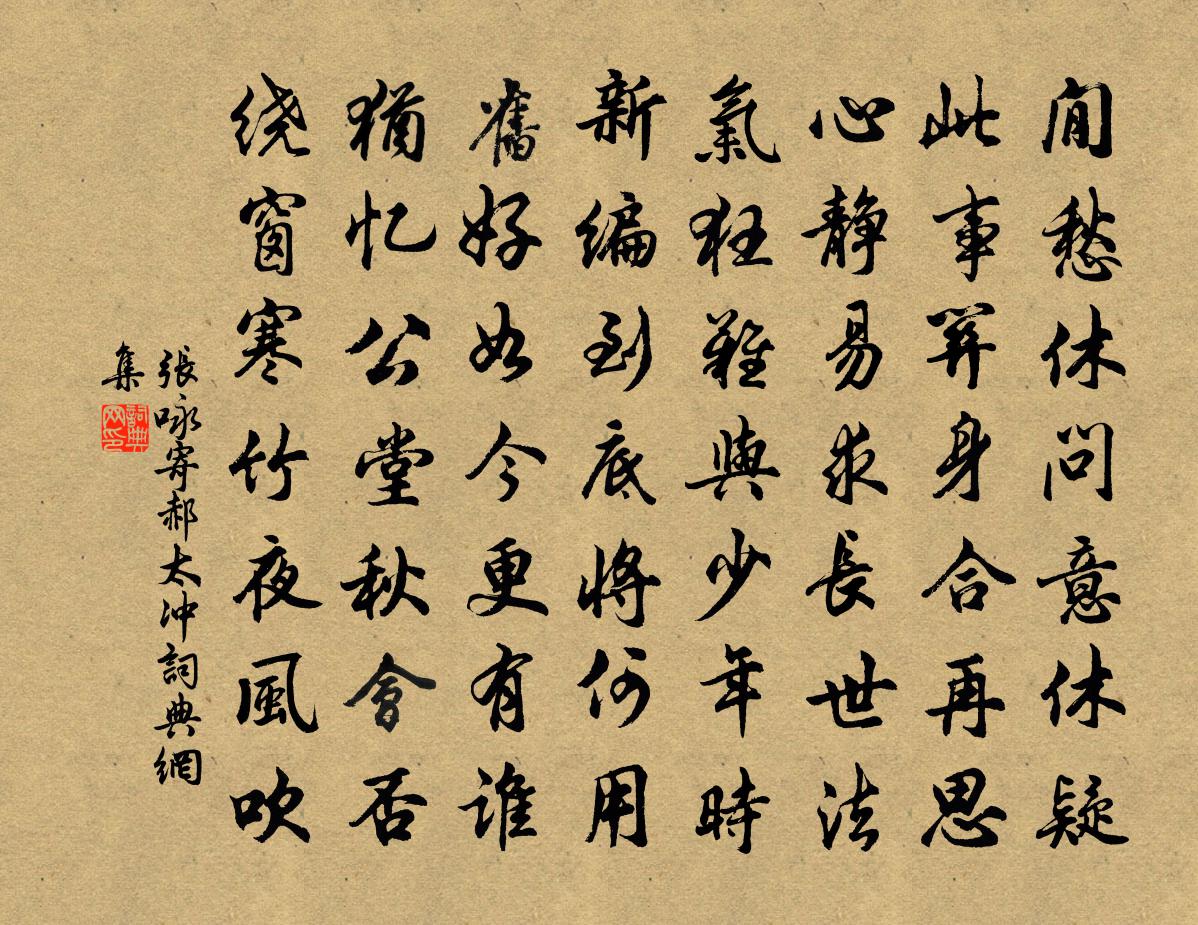 閒愁休問意休疑
此事關身合再思
心靜易求長世法
氣狂難與少年時
新編到底將何用
舊好如今更有誰
猶忆公堂秋會否
绕窗寒竹夜風吹
張咏寄郝太沖詞典網
集
詞典网印